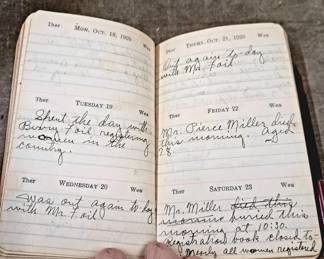 Ther Mon, Oct. 18, 1920 Wea
Ther Tuesday 19 Wea
Spent the day with
Foil registering
women in the
county.
Ther Wednesday 20 Wea
Was out again to-day
with Mr. Foil
Ther Thurs. Oct. 21, 1920 Wea
Out again to-day
with Mr. Foil
Ther Friday 22 Wea
Mr. Pierce Miller died
this morning aged
28
Ther Saturday 23 Wea
Mr. Miller died this
morning burried this
morning at 10:30.
Registration book closed to-
nearly all women registered